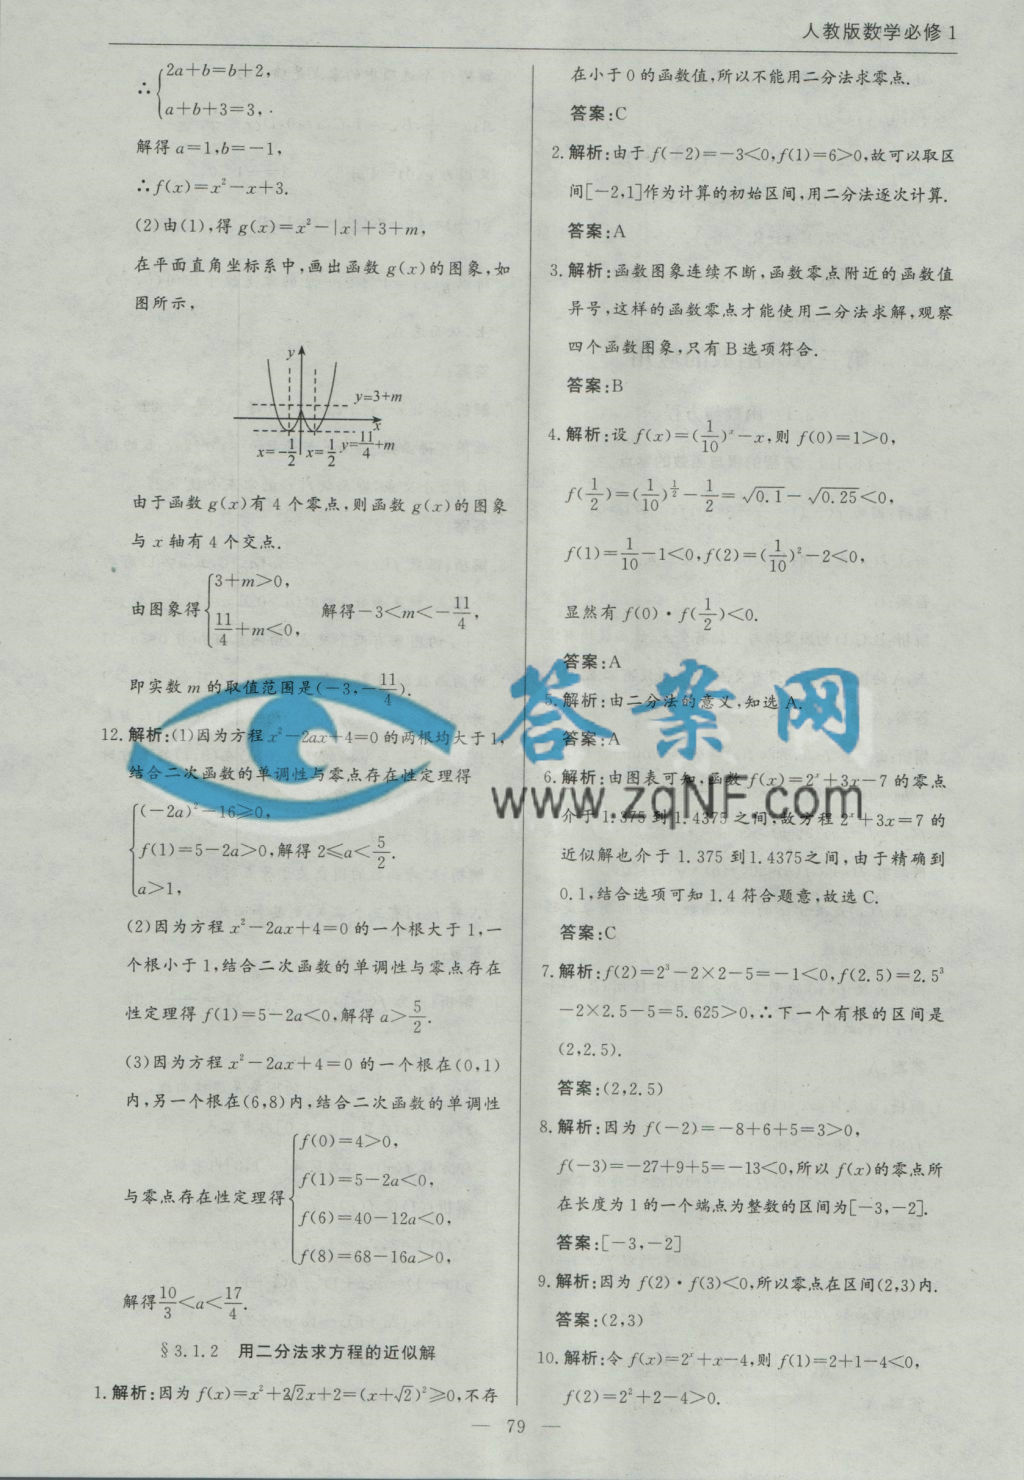 人教版数学必修1
∴{2a+b=b+2,
a+b+3=3,
解得a=1,b=-1,
∴f(x)=x²-x+3.
(2)由(1),得g(x)=x²-|x|+3+m,
在平面直角坐标系中,画出函数g(x)的图象,如
图所示,
y
y=3+m
x
x=-1/2 x=1/2 y=11/4+m
由于函数g(x)有4个零点,则函数g(x)的图象
与x轴有4个交点.
由图象得{3+m>0, 11/4+m<0, 解得-3<m<-11/4,
即实数m的取值范围是(-3,-11/4).
12.解析:(1)因为方程x²-2ax+4=0的两根均大于1,
结合二次函数的单调性与零点存在性定理得
{(-2a)²-16≥0,
f(1)=5-2a>0,解得2≤a<5/2.
a>1,
(2)因为方程x²-2ax+4=0的一个根大于1,一
个根小于1,结合二次函数的单调性与零点存在
性定理得f(1)=5-2a<0,解得a>5/2.
(3)因为方程x²-2ax+4=0的一个根在(0,1)
内,另一个根在(6,8)内,结合二次函数的单调性
与零点存在性定理得{f(0)=4>0,
f(1)=5-2a<0,
f(6)=40-12a<0,
f(8)=68-16a>0,
解得10/3<a<17/4.
§3.1.2 用二分法求方程的近似解
1.解析:因为f(x)=x²+2√2x+2=(x+√2)²≥0,不存
在小于0的函数值,所以不能用二分法求零点.
答案:C
2.解析:由于f(-2)=-3<0,f(1)=6>0,故可以取区
间[-2,1]作为计算的初始区间,用二分法逐次计算.
答案:A
3.解析:函数图象连续不断,函数零点附近的函数值
异号,这样的函数零点才能使用二分法求解,观察
四个函数图象,只有B选项符合.
答案:B
4.解析:设f(x)=(1/10)ˣ-x,则f(0)=1>0,
f(1/2)=(1/10)^(1/2)-1/2=√0.1-√0.25<0,
f(1)=1/10-1<0,f(2)=(1/10)²-2<0,
显然有f(0)·f(1/2)<0.
答案:A
5.解析:由二分法的意义,知选A.
答案:A
6.解析:由图表可知,函数f(x)=2ˣ+3x-7的零点
介于1.375到1.4375之间,故方程2ˣ+3x=7的
近似解也介于1.375到1.4375之间,由于精确到
0.1,结合选项可知1.4符合题意,故选C.
答案:C
7.解析:f(2)=2³-2×2-5=-1<0,f(2.5)=2.5³
-2×2.5-5=5.625>0,∴下一个有根的区间是
(2,2.5).
答案:(2,2.5)
8.解析:因为f(-2)=-8+6+5=3>0,
f(-3)=-27+9+5=-13<0,所以f(x)的零点所
在长度为1的一个端点为整数的区间为[-3,-2].
答案:[-3,-2]
9.解析:因为f(2)·f(3)<0,所以零点在区间(2,3)内.
答案:(2,3)
10.解析:令f(x)=2ˣ+x-4,则f(1)=2+1-4<0,
f(2)=2²+2-4>0.
— 79 —
答案网
www.zqNF.com